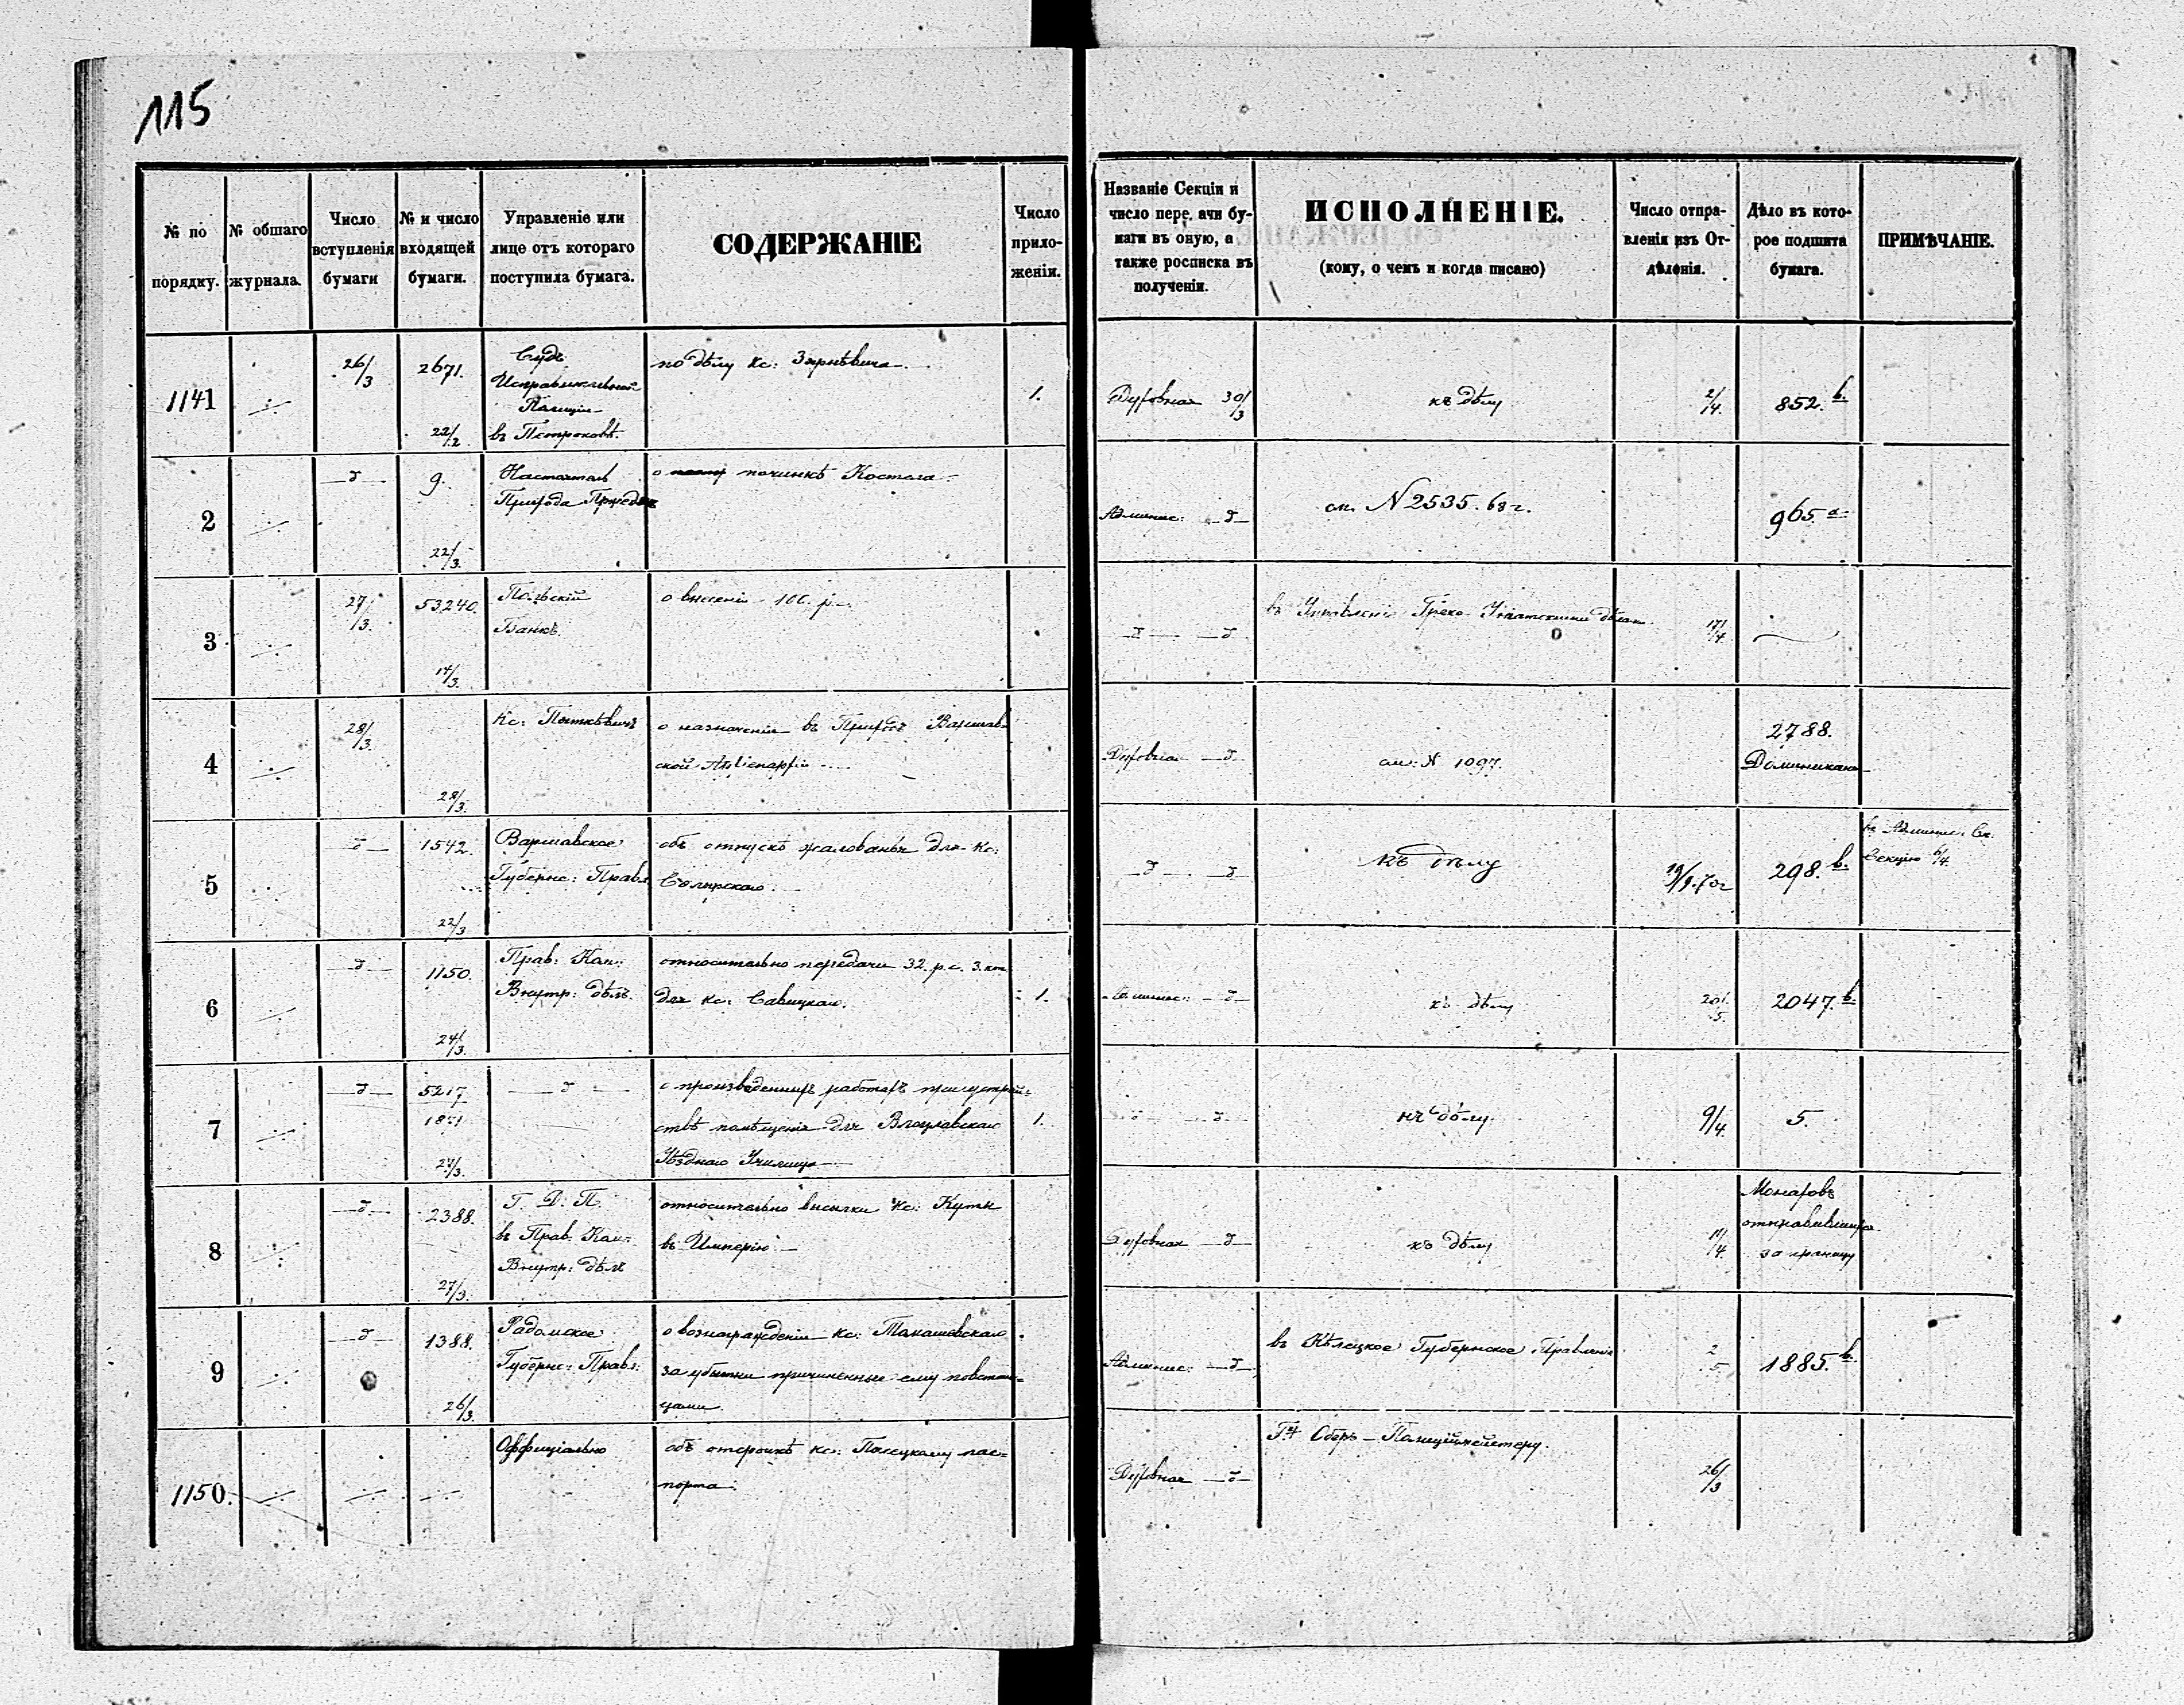 115
№ по порядку.
№ общаго журнала.
Число вступленія бумаги
№ и число входящей бумаги.
Управленіе или лице отъ котораго поступила бумага.
СОДЕРЖАНІЕ
Число приложеніи.
Названіе Секціи и число пере. ачи бумаги въ оную, а также росписка въ полученіи.
ИСПОЛНЕНІЕ.
(кому, о чемъ и когда писано)
Число отправленія изъ Отдѣленія.
Дѣло въ которое подшита бумага.
ПРИМѢЧАНІЕ.
1141
26/3
2671.
22/2
Судъ
Исправительной
Полиціи
въ Петроковѣ.
по дѣлу Кс:
1.
Духовная 30/3
къ дѣлу
2/4.
852. b.
2
д
9.
22/3.
Настоятель
Прихода
о починкѣ Костела
Админис: д
см. N 2535. 68 г.
965 a.
3
27/3.
53240.
17/3.
Польскій
Банкъ.
о высылкѣ 100. р.
д д
въ Управленіе Греко-Уніатскими дѣлами.
17/4.
4
28/3.
28/3.
Кс:
о назначеніи въ Приходъ Варшав-
ской Архіепархіи
Духовная д
см: N 1097.
2788.
Доминикане
5
д
1542.
22/3
Варшавское
Губернс: Правл.
объ отпускѣ жалованья для Кс:
д д
къ дѣлу
19/9. 70 г
298. b.
въ Админис: Ск.
Секцію 6/4.
6
д
1150.
24/3.
Прав: Ком:
Внутр: дѣлъ.
относительно передачи 32. р. с. 3. коп.
для Кс: Савицкаго.
1.
Админис: д
къ дѣлу
20/5.
2047. b.
7
д
5217
27/3.
д
о произведенныхъ работахъ при устрой-
ствѣ помѣщенія для Влоцлавскаго
Уѣзднаго Училища
1.
д д
къ дѣлу
9/4.
5.
8
д
2388.
27/3.
Г. Д. П.
въ Прав: Ком:
Внутр: дѣлъ
относительно высылки Кс: Куты
въ Имперію
Духовная д
къ дѣлу
11/4.
Монаховъ
отправившихся
за границу
9
д
1388.
26/3.
Радомское
Губернс: Правл:
о вознагражденіи Кс:
за убытки причиненные ему повстан-
цами.
Админис: д
въ Кѣлецкое Губернское Правленіе
2/5.
1885. b.
1150.
Оффиціально
объ отсрочкѣ кс: пас-
порта.
Духовная д
Гну Оберъ-Полиціймейстеру.
26/3